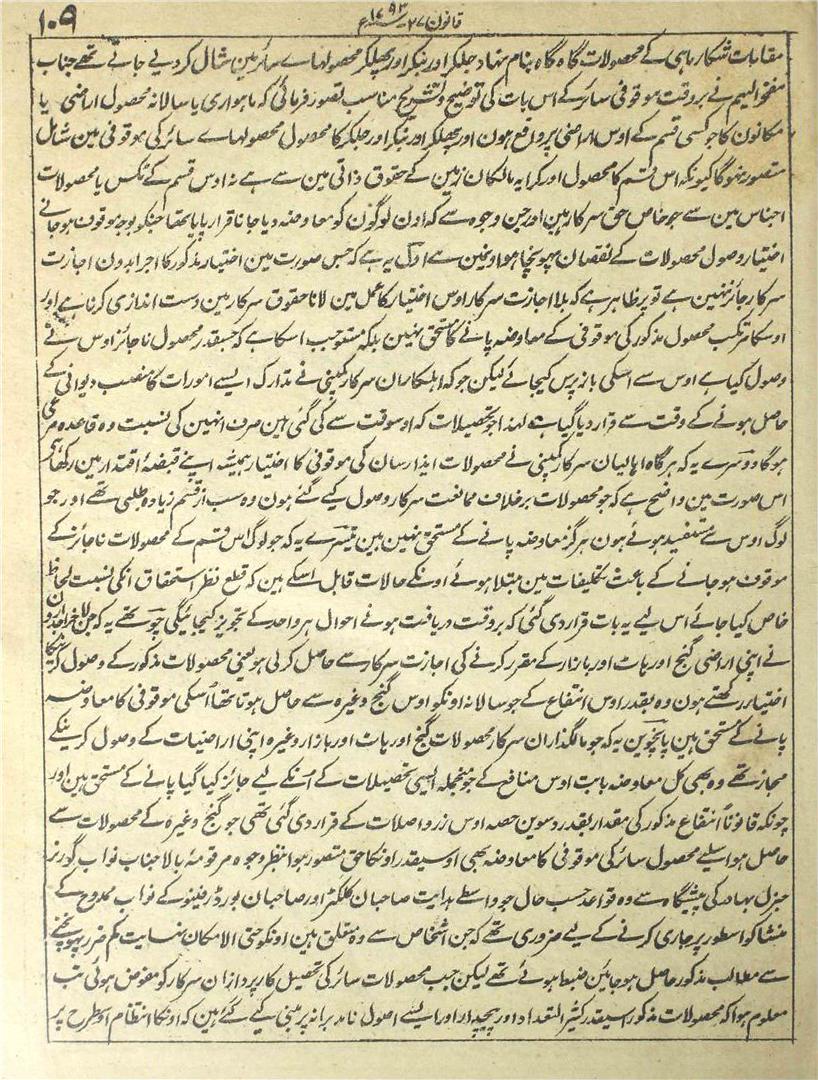 قانون ۲۷ ۱۷۹۳ع
۱۰۹
مقامات شکار ماہی کے محصولات گاہ گاہ بنام نہاد جلکر اور بنکر اور پھلکر محصولہاے سائر مین شامل کردیے جاتے تھے جناب
مفخر الیہم نے بروقت موقوفی سائر کے اس بات کی توضیح و تشریح مناسب تصور فرمائی کہ ماہواری یا سالانہ محصول اراضی یا
مکانون کا جو کسی قسم کے اوس اراضی پر واقع ہون اور پھلکر اور بنکر اور جلکر کا محصول محصولہاے سائر کی موقوفی مین شامل
متصور نہوگا کیونکہ اس قسم کا محصول اور کرایہ مالکان زمین کے حقوق ذاتی مین سے ہے نہ اوس قسم کے ٹکس یا محصولات
اجناس مین سے جو خاص حق سرکار ہین اور جن وجوہ سے کہ اون لوگون کو معاوضہ دیا جانا قرار پایا تھا جنکو بوجہ موقوف ہوجانے
اختیار وصول محصولات کے نقصان پہونچا ہو اونمین سے اول یہ ہے کہ جس صورت مین اختیار مذکور کا اجرا بدون اجازت
سرکار جائز نہین ہے تو پر ظاہر ہے کہ بلا اجازت سرکار اوس اختیار کا عمل مین لانا حقوق سرکار مین دست اندازی کرنا ہے اور
اوسکا مرتکب محصول مذکور کی موقوفی کے معاوضہ پانے کا مستحق نہین بلکہ مستوجب اسکا ہے کہ جسقدر محصول ناجائز اوس نے
وصول کیا ہے اوس سے اسکی بازپرس کیجائے لیکن جو کہ اہلکاران سرکار کمپنی نے تدارک ایسے امورات کا منصب دیوانی کے
حاصل ہونے کے وقت سے قرار دیا گیا ہے لہذا جو تحصیلات کہ اوسوقت سے کی گئی ہین صرف انہین کی نسبت وہ قاعدہ مرعی
ہوگا دوسرے یہ کہ ہرگاہ اہالیان سرکار کمپنی نے محصولات ایذارسان کی موقوفی کا اختیار ہمیشہ اپنے قبضۂ اقتدار مین رکھا ہی
اس صورت مین واضح ہے کہ جو محصولات برخلاف ممانعت سرکار وصول کیے گئے ہون وہ سب از قسم زیادہ طلبی تھے اور جو
لوگ اوس سے مستفید ہوئے ہون ہرگز معاوضہ پانے کے مستحق نہین ہین تیسرے یہ کہ جو لوگ اس قسم کے محصولات ناجائز کے
موقوف ہوجانے کے باعث تکلیفات مین مبتلا ہوئے اونکے حالات قابل اسکے ہین کہ قطع نظر استحقاق انکی نسبت لحاظ
خاص کیا جائے اس لیے یہ بات قرار دی گئی کہ بروقت دریافت ہونے احوال ہر واحد کے تجویز کیجائیگی چوتھے یہ کہ جن لاخراجداران
نے اپنی اراضی گنج اور ہاٹ اور بازار کے مقرر کرنے کی اجازت سرکار سے حاصل کرلی ہو یعنی محصولات مذکور کے وصول کرنیکا
اختیار رکھتے ہون وہ بقدر اوس انتفاع کے جو سالانہ اونکو اوس گنج وغیرہ سے حاصل ہوتا تھا اسکی موقوفی کا معاوضہ
پانے کے مستحق ہین پانچوین یہ کہ جو مالگذاران سرکار محصولات گنج اور ہاٹ اور بازار وغیرہ اپنی اراضیات کے وصول کرینکے
مجاز تھے وہ بھی کل معاوضہ بابت اوس منافع کے جو منجملہ ایسی تحصیلات کے اُنکے لیے جائز کیا گیا پانے کے مستحق ہین اور
چونکہ قانوناً انتفاع مذکور کی مقدار بقدر دسوین حصہ اوس زر واصلات کے قرار دی گئی تھی جو گنج وغیرہ کے محصولات سے
حاصل ہوا سلیے محصول سائر کی موقوفی کا معاوضہ بھی اوسیقدر اونکا حق متصور ہوا نظر وجوہ مرقومۂ بالا جناب نواب گورنر
جنرل بہادر کی پیشگاہ سے وہ قواعد حسب حال جو واسطے ہدایت صاحبان کلکٹر اور صاحبان بورڈ رینیو کے نواب ممدوح کے
منشا کو اسطور پر جاری کرنے کے لیے ضروری تھے کہ جن اشخاص سے وہ متعلق ہین اونکو حتی الامکان نہایت کم ضرر پہونچنے
سے مطالب مذکور حاصل ہوجائین ضبط ہوئے تھے لیکن جب محصولات سائر کی تحصیل کارپردازان سرکار کو مفوض ہوئی تب
معلوم ہوا کہ محصولات مذکور اسیقدر کثیر التعداد اور پیچیدار اور ایسے اصول نامدبرانہ پر مبنی کیے گئے ہین کہ اونکا انتظام اوسطرح پر